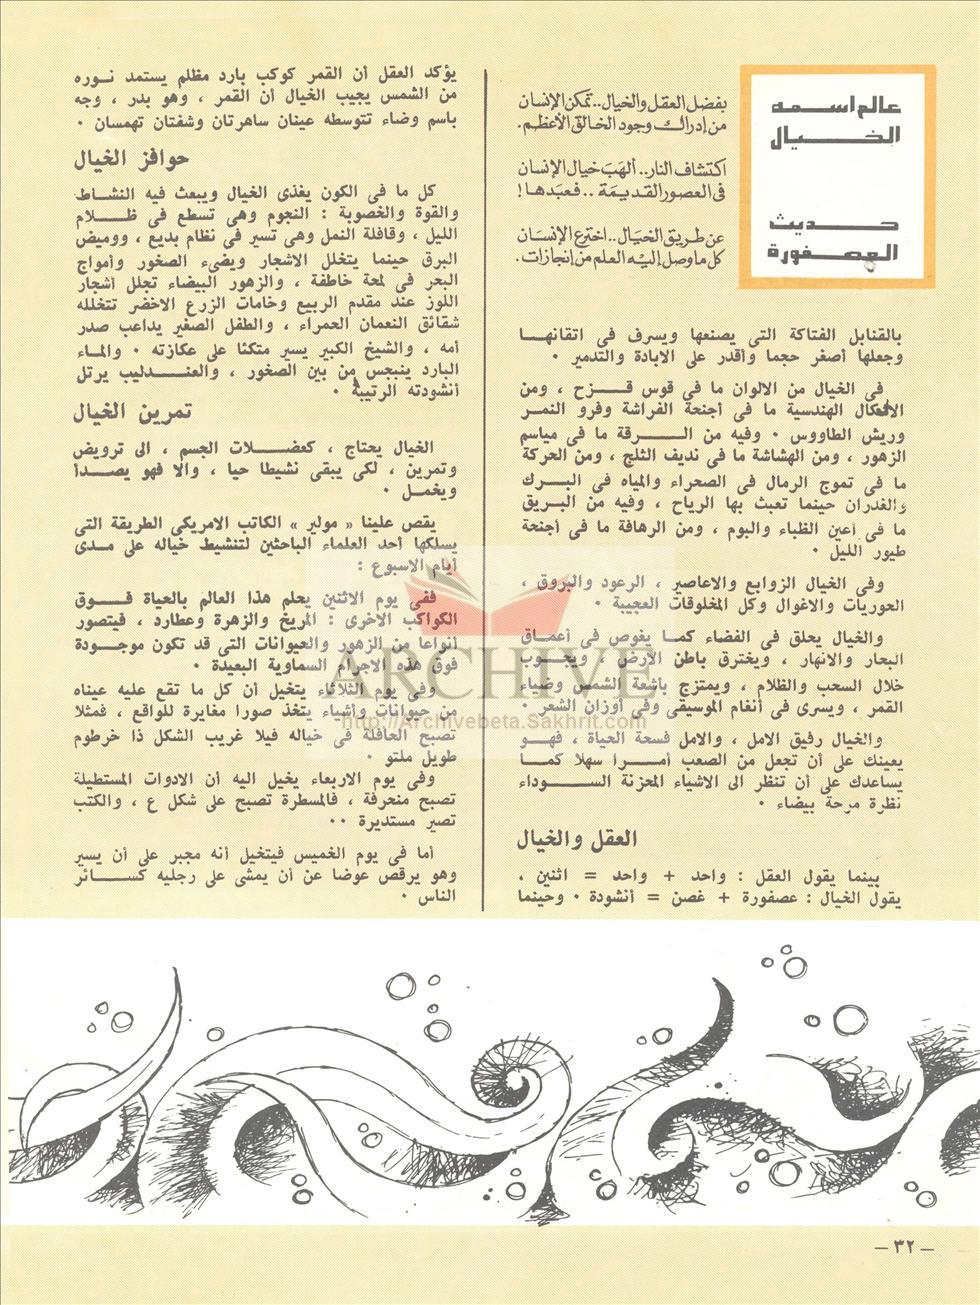 عالم اسمه
الخيال
حديث
العصفورة
بفضل العقل والخيال.. تمكن الإنسان
من إدراك وجود الخالق الأعظم.
اكتشاف النار.. ألهَبَ خيال الإنسان
فى العصور القديمَة .. فعبَدها !
عن طريق الخيَال.. اخترع الإنسَان
كل ما وصل إليه العلم من إنجازات.
بالقنابل الفتاكة التى يصنعها ويسرف فى اتقانهــا
وجعلها أصغر حجما وأقدر على الابادة والتدمير ٠
فى الخيال من الالوان ما فى قوس قــزح ، ومن
الاشكال الهندسية ما فى أجنحة الفراشة وفرو النمـر
وريش الطاووس ٠ وفيه من الــــرقة ما فى مياسم
الزهور ، ومن الهشاشة ما فى نديف الثلج ، ومن الحركة
ما فى تموج الرمال فى الصحراء والمياه فى البــرك
والغدران حينما تعبث بها الرياح ، وفيه من البــريق
ما فى أعين الظباء والبوم ، ومن الرهافة ما فى أجنحة
طيور الليل ٠
وفى الخيال الزوابع والاعاصير ، الرعود والبروق ،
الحوريات والاغوال وكل المخلوقات العجيبة ٠
والخيال يحلق فى الفضاء كمـا يغوص فى أعمــاق
البحار والانهار ، ويخترق باطن الأرض ، ويجــوب
خلال السحب والظلام ، ويمتزج بأشعة الشمس وضياء
القمر ، ويسرى فى أنغام الموسيقى وفى أوزان الشعر ٠
والخيال رفيق الامل ، والامل فسحة الحياة ، فهــو
يعينك على أن تجعل من الصعب أمــرا سهلا كمــا
يساعدك على أن تنظر الى الاشياء المحزنة الســـوداء
نظرة مرحة بيضاء ٠
العقل والخيال
بينما يقول العقل : واحد + واحد = اثنين ،
يقول الخيال : عصفورة + غصن = أنشودة ٠ وحينما
يؤكد العقل أن القمر كوكب بارد مظلم يستمد نــوره
من الشمس يجيب الخيال أن القمر ، وهو بدر ، وجه
باسم وضاء تتوسطه عينان ساهرتان وشفتان تهمسان ٠
حوافز الخيال
كل ما فى الكون يغذى الخيال ويبعث فيه النشـاط
والقوة والخصوبة : النجوم وهى تسطع فى ظــــلام
الليل ، وقافلة النمل وهى تسير فى نظام بديع ، ووميض
البرق حينما يتخلل الاشجار ويضىء الصخور وأمواج
البحر فى لمحة خاطفة ، والزهور البيضاء تجلل أشجار
اللوز عند مقدم الربيع وخامات الزرع الاخضر تتخلله
شقائق النعمان الحمراء ، والطفل الصغير يداعب صدر
أمه ، والشيخ الكبير يسير متكئا على عكازته ٠ والمـاء
البارد ينبجس من بين الصخور ، والعنــدليب يرتل
أنشودته الرتيبة ٠
تمرين الخيال
الخيال يحتاج ، كعضــلات الجسم ، الى ترويض
وتمرين ، لكى يبقى نشيطا حيا ، والا فهو يصــدأ
ويخمــل ٠
يقص علينا « مولير » الكاتب الامريكى الطريقة التى
يسلكها أحد العلماء الباحثين لتنشيط خياله على مــدى
أيام الاسبوع :
ففى يوم الاثنين يحلم هذا العالم بالحياة فــوق
الكواكب الاخرى : المريخ والزهرة وعطارد ، فيتصور
أنواعا من الزهور والحيوانات التى قد تكون موجــودة
فوق هذه الاجرام السماوية البعيدة ٠
وفى يوم الثلاثاء يتخيل أن كل ما تقع عليه عيناه
من حيوانات وأشياء يتخذ صورا مغايرة للواقع ، فمثلا
تصبح الحافلة فى خياله فيلا غريب الشكل ذا خرطوم
طويل ملتو ٠
وفى يوم الاربعاء يخيل اليه أن الادوات المستطيلة
تصبح منحرفة ، فالمسطرة تصبح على شكل ع ، والكتب
تصير مستديرة ٠٠
أما فى يوم الخميس فيتخيل أنه مجبر على أن يسير
وهو يرقص عوضا عن أن يمشى على رجليه كســـائر
الناس ٠
ARCHIVE
http://Archivebeta.Sakhrit.com
– ٣٢ –